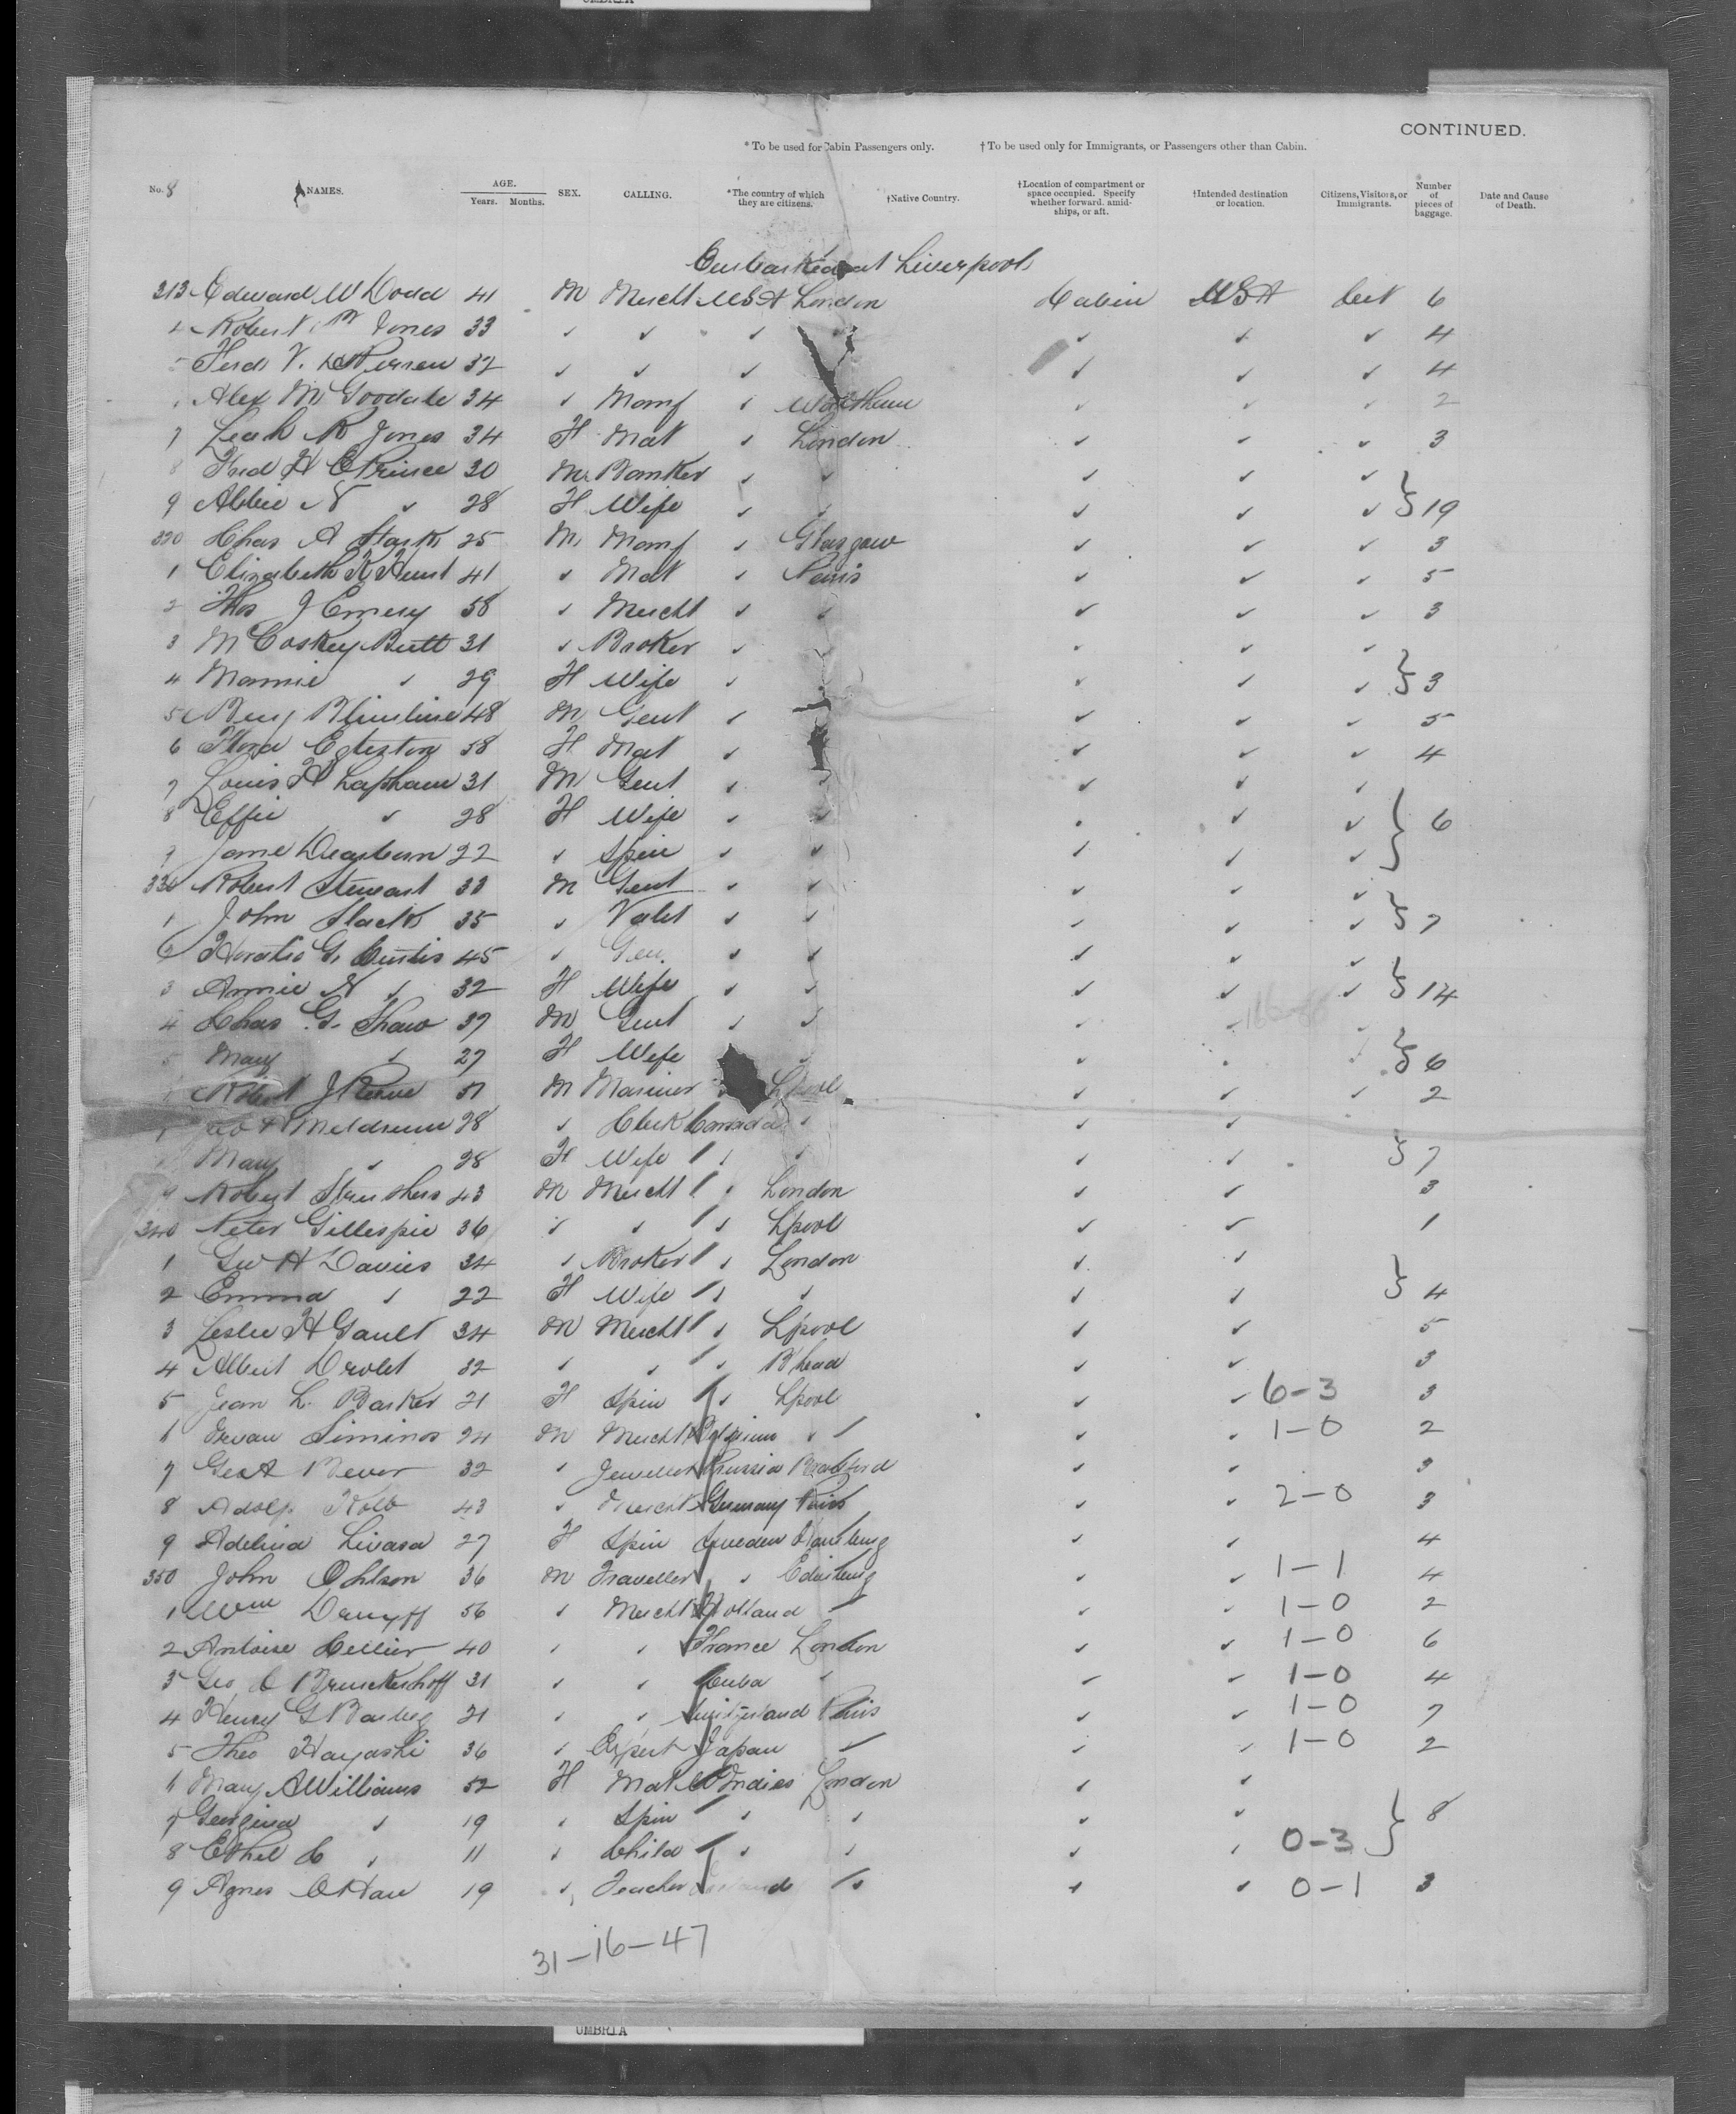 UMBRIA
CONTINUED.
* To be used for Cabin Passengers only. † To be used only for Immigrants, or Passengers other than Cabin.
No. 8 NAMES. AGE. Years. Months. SEX. CALLING. *The country of which they are citizens. †Native Country. †Location of compartment or space occupied. Specify whether forward, amidships, or aft. †Intended destination or location. Citizens, Visitors, or Immigrants. Number of pieces of baggage. Date and Cause of Death.
Embarked at Liverpool
313 Edward W Dodd 41 M Mercht USA London Cabin USA Cit 6
4 Robert Jones 33 ✓ ✓ ✓ ✓ ✓ ✓ 4
5 Ferd. V. 32 ✓ ✓ ✓ ✓ ✓ ✓ 4
Alex M Goodale 34 ✓ Manf ✓ Waltham ✓ ✓ ✓ 2
7 Leah R Jones 34 F Mat ✓ London ✓ ✓ ✓ 3
8 Fred H Prince 30 M Banker ✓ ✓ ✓ ✓ ✓
9 Abbie N ✓ 28 F Wife ✓ ✓ ✓ ✓ ✓ } 19
320 Chas A Stark 25 M Manf ✓ Glasgow ✓ ✓ ✓ 3
1 Elizabeth K Hunt 41 ✓ Mat ✓ Paris ✓ ✓ ✓ 5
2 Thos J Emery 58 ✓ Mercht ✓ ✓ ✓ ✓ ✓ 3
3 McCoskey Butt 31 ✓ Broker ✓ ✓ ✓ ✓
4 Mannie ✓ 29 F Wife ✓ ✓ ✓ ✓ } 3
5 Benj 48 M Gent ✓ ✓ ✓ ✓ 5
6 Flora Egleston 58 F Mat ✓ ✓ ✓ ✓ 4
7 Louis H Lapham 31 M Gent ✓ ✓ ✓ ✓ ✓
8 Effie ✓ 28 F Wife ✓ ✓ ✓ ✓ ✓ } 6
9 Jane Dearborn 22 ✓ Spin ✓ ✓ ✓ ✓ ✓
330 Robert Stewart 33 M Gent ✓ ✓ ✓ ✓ ✓
1 John Slack 35 ✓ Valet ✓ ✓ ✓ ✓ ✓ } 7
Horatio G. Curtis 45 ✓ Gen. ✓ ✓ ✓ ✓ ✓
3 Annie N ✓ 32 F Wife ✓ ✓ ✓ ✓ ✓ } 14
4 Chas G. Shaw 37 M Gent ✓ ✓ ✓ ✓ ✓
5 Mary ✓ 27 F Wife ✓ ✓ ✓ ✓ } 6
Robert J 51 M Mariner ✓ Lpool ✓ ✓ ✓ 2
Meldrum 28 ✓ Clerk Canada ✓ ✓ ✓
Mary ✓ 28 F Wife ✓ ✓ ✓ ✓ } 7
9 Robert Struthers 43 M Mercht ✓ London ✓ ✓ 3
340 Peter Gillespie 36 ✓ ✓ ✓ Lpool ✓ ✓ 1
1 Geo H Davies 34 ✓ Broker ✓ London ✓ ✓
2 Emma ✓ 22 F Wife ✓ ✓ ✓ ✓ } 4
3 Leslie H Gault 34 M Mercht ✓ Lpool ✓ ✓ 5
4 Albert Drolet 32 ✓ ✓ ✓ B'head ✓ ✓ 3
5 Jean L. Barker 21 F Spin ✓ Lpool ✓ ✓ 6-3 3
6 Siminos 24 M Mercht Belgium ✓ ✓ ✓ 1-0 2
7 Geo A Bever 32 ✓ Jeweller Prussia Bradford ✓ ✓ 3
8 Adolp. Kolb 43 ✓ Mercht Germany Paris ✓ ✓ 2-0 3
9 Adelina 27 F Spin Sweden ✓ ✓ 4
350 John Ohlson 36 M Traveller ✓ Edinburg ✓ ✓ 1-1 4
1 Wm 56 ✓ Mercht Holland ✓ ✓ ✓ 1-0 2
2 Antoise Cellier 40 ✓ ✓ France London ✓ ✓ 1-0 6
3 Geo C Brunckerhoff 31 ✓ ✓ Cuba ✓ ✓ ✓ 1-0 4
4 Henry G 21 ✓ ✓ Switzerland Paris ✓ ✓ 1-0 7
5 Theo Hayashi 36 ✓ Expert Japan ✓ ✓ ✓ 1-0 2
6 Mary A Williams 52 F Mat W Indies London ✓ ✓
7 Georgina ✓ 19 ✓ Spin ✓ ✓ ✓ ✓ } 8
8 Ethel C ✓ 11 ✓ Child ✓ ✓ ✓ ✓ 0-3
9 Agnes 19 ✓ Teacher ✓ ✓ ✓ 0-1 3
31-16-47
UMBRIA